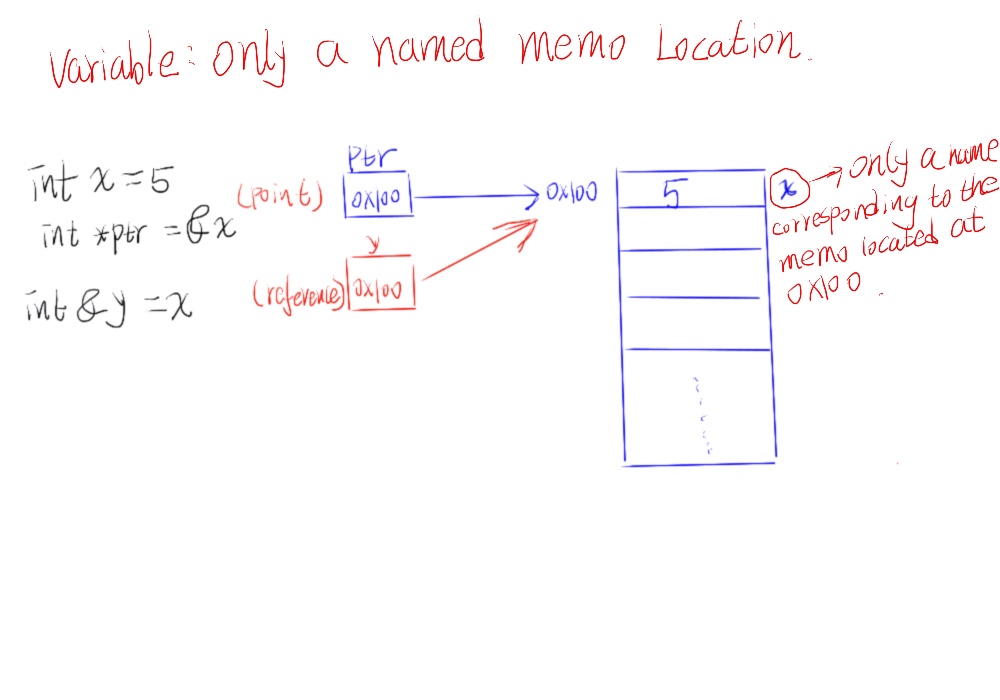 Variable: only a named memo Location.
int x = 5
int *ptr = &x
int & y = x
Ptr
(point)
0X100
0X100
y
(reference)
0X100
5
x
only a name
corresponding to the
memo located at
0X100.